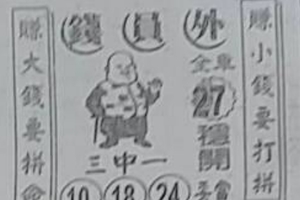 外員錢
賺小錢要打拼
全車
27
穩開
三中一
10 18 24
賺大錢要拼命